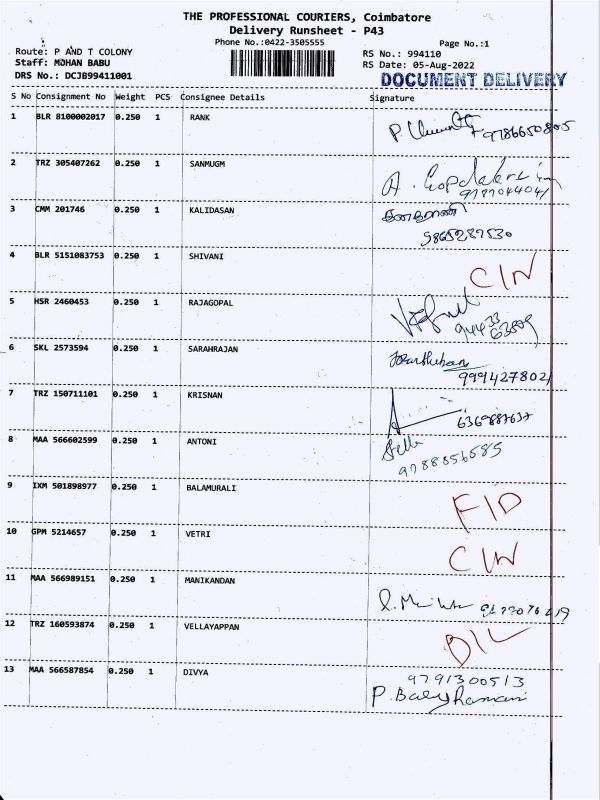 THE PROFESSIONAL COURIERS, Coimbatore
Delivery Runsheet - P43
Phone No.:0422-3505555 Page No.:1
Route: P AND T COLONY RS No.: 994110
Staff: MOHAN BABU RS Date: 05-Aug-2022
DRS No.: DCJB99411001 DOCUMENT DELIVERY
S No Consignment No Weight PCS Consignee Details Signature
1 BLR 8100002017 0.250 1 RANK
9786650805
2 TRZ 305407262 0.250 1 SANMUGM
3 CMM 201746 0.250 1 KALIDASAN
9865287530
4 BLR 5151083753 0.250 1 SHIVANI
CIN
5 HSR 2460453 0.250 1 RAJAGOPAL
6 SKL 2573594 0.250 1 SARAHRAJAN
9994278021
7 TRZ 150711101 0.250 1 KRISNAN
8 MAA 566602599 0.250 1 ANTONI
9788856585
9 IXM 501898977 0.250 1 BALAMURALI
FID
10 GPM 5214657 0.250 1 VETRI
CIN
11 MAA 566989151 0.250 1 MANIKANDAN
12 TRZ 160593874 0.250 1 VELLAYAPPAN
DIL
13 MAA 566587854 0.250 1 DIVYA
9791300513